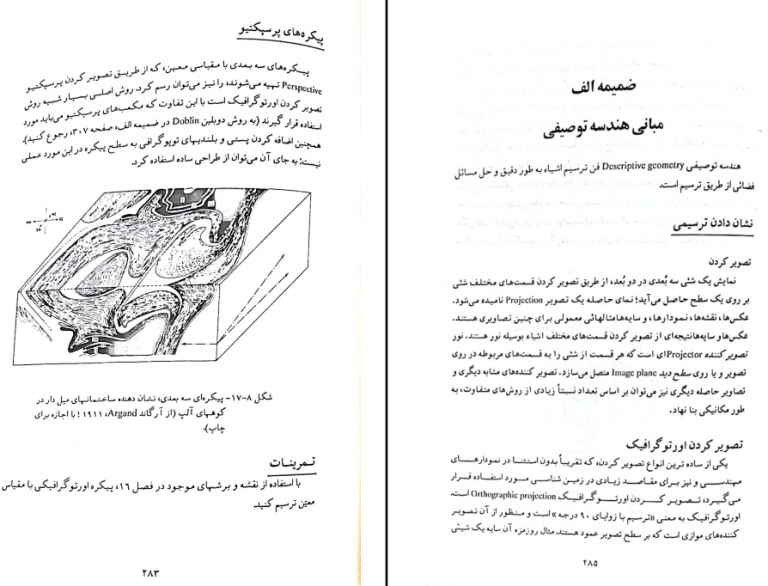 پیکره‌های پرسپکتیو
پیکره‌های سه بعدی با مقیاسی معین، که از طریق تصویر کردن پرسپکتیو
Perspective تهیه می‌شوند، را نیز می‌توان رسم کرد. روش اصلی بسیار شبیه روش
تصویر کردن اورتوگرافیک است با این تفاوت که مکعب‌های پرسپکتیو می‌باید مورد
استفاده قرار گیرند (به روش دوبلین Doblin در ضمیمه الف، صفحه ۳۰۷، رجوع کنید).
همچنین اضافه کردن پستی و بلندیهای توپوگرافی به سطح پیکره در این مورد عملی
نیست؛ به جای آن می‌توان از طراحی ساده استفاده کرد.
شکل ۸-۱۷- پیکره‌ای سه بعدی، نشان دهنده ساختمانهای میل دار در
کوههای آلپ (از آرگاند Argand، ۱۹۱۱؛ با اجازه برای
چاپ).
تمرینات
با استفاده از نقشه و برشهای موجود در فصل ۱۶، پیکره اورتوگرافیکی با مقیاس
معیّن ترسیم کنید.
۲۸۳
ضمیمه الف
مبانی هندسه توصیفی
هندسه توصیفی Descriptive geometry فن ترسیم اشیاء به طور دقیق و حل مسائل
فضائی از طریق ترسیم است.
نشان دادن ترسیمی
تصویر کردن
نمایش یک شئی سه بُعدی در دو بُعد، از طریق تصویر کردن قسمت‌های مختلف شئی
بر روی یک سطح حاصل می‌آید؛ نمای حاصله یک تصویر Projection نامیده می‌شود.
عکس‌ها، نقشه‌ها، نمودارها، و سایه‌ها مثالهائی معمولی برای چنین تصاویری هستند.
عکس‌ها و سایه‌ها نتیجه‌ای از تصویر کردن قسمت‌های مختلف اشیاء بوسیله نور هستند. نور
تصویر کننده Projectorای است که هر قسمت از شئی را به قسمت‌های مربوطه در روی
تصویر و یا روی سطح دید Image plane متصل می‌سازد. تصویر کننده‌های مشابه دیگری و
تصاویر حاصله دیگری نیز می‌توان بر اساس تعداد نسبتاً زیادی از روش‌های متفاوت، به
طور مکانیکی بنا نهاد.
تصویر کردن اورتوگرافیک
یکی از ساده ترین انواع تصویر کردن، که تقریباً بدون استثنا در نمودارهای
مهندسی و نیز برای مقاصد زیادی در زمین شناسی مورد استفاده قرار
می‌گیرد، تصویر کردن اورتوگرافیک Orthographic projection است.
اورتوگرافیک به معنی «ترسیم با زوایای ۹۰ درجه» است و منظور از آن تصویر
کننده‌های موازی است که بر سطح تصویر عمود هستند. مثال روزمره آن سایه یک شیئی
۲۸۵